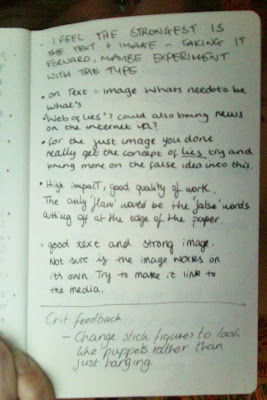 - I FEEL THE STRONGEST IS
THE TEXT + IMAGE - TAKING IT
FORWARD, MAYBE EXPERIMENT
WITH THE TYPE
• on Text - image whats need to be
what's
• 'Web of lies'? could also bring news
on the internet in?
• for the just image you done
really get the concept of lies try and
bring more on the false idea into this.
• High impact, good quality of work.
The only 'flaw' would be the 'false' words
cutting off at the edge of the paper
• good text and strong image.
Not sure if the image works on
its own. Try to make it link to
the media.
Crit feedback
- Change stick figures to look
like puppets rather than
just hanging.